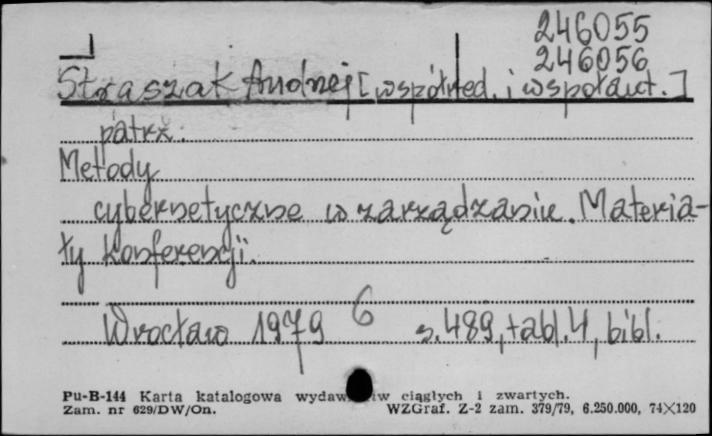 246055
246056
Straszak Andrzej [współred. i współaut.]
patrz:
Metody
cybernetyczne w zarządzaniu. Materia-
ły konferencji.
6
Wrocław 1979 s. 489, tabl. 4, bibl.
Pu-B-144 Karta katalogowa ciągłych i zwartych.
Zam. nr 629/DW/On. WZGraf. Z-2 zam. 379/79, 6.250.000, 74×120